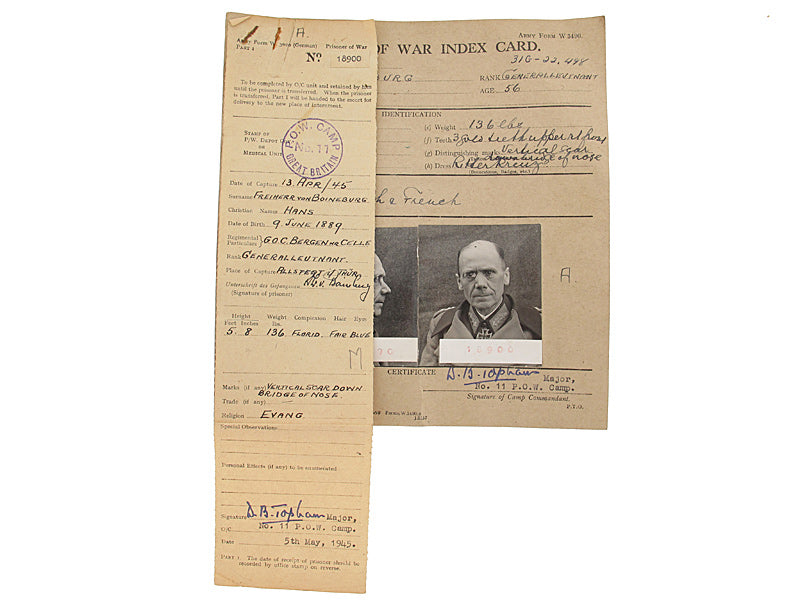 A.
Army Form W. 3000 (German) Prisoner of War
PART 1
No 18900
To be completed by O/C unit and retained by him
until the prisoner is transferred. When the prisoner
is transferred, Part I will be handed to the escort for
delivery to the new place of internment.
STAMP OF
P/W. DEPOT OR
MEDICAL UNIT
P.O.W. CAMP
No. 11
GREAT BRITAIN
Date of Capture 13. APR/45
Surname FREIHERR VON BOINEBURG
Christian Names HANS
Date of Birth 9 JUNE 1889
Regimental
Particulars } G.O.C. BERGEN NR CELLE
Rank GENERALLEUTNANT.
Place of Capture ALLSTEDT
Unterschrift des Gefangenen
(Signature of prisoner)
Height Weight Complexion Hair Eyes
Feet Inches lbs.
5. 8 136. FLORID. FAIR BLUE
M
Marks (if any) VERTICAL SCAR DOWN
BRIDGE OF NOSE.
Trade (if any)
Religion EVANG.
Special Observations
Personal Effects (if any) to be enumerated
Signature D.B. Topham Major,
O/C No. 11 P.O.W. Camp.
Date 5th May, 1945.
PART 1. The date of receipt of prisoner should be
recorded by office stamp on reverse.
ARMY FORM W 3496.
OF WAR INDEX CARD.
31G-22,498
BURG RANK GENERALLEUTNANT
AGE 56
IDENTIFICATION
(e) Weight 136 lbs
(f) Teeth 3 gold teeth upper
(g) Distinguishing marks Vertical scar
down bridge of nose
(h) Dress Ritter Kreuz
(Decorations, Badges, etc.)
& French
A.
90
18900
CERTIFICATE
D.B. Topham Major,
No. 11 P.O.W. Camp.
Signature of Camp Commandant.
P.T.O.